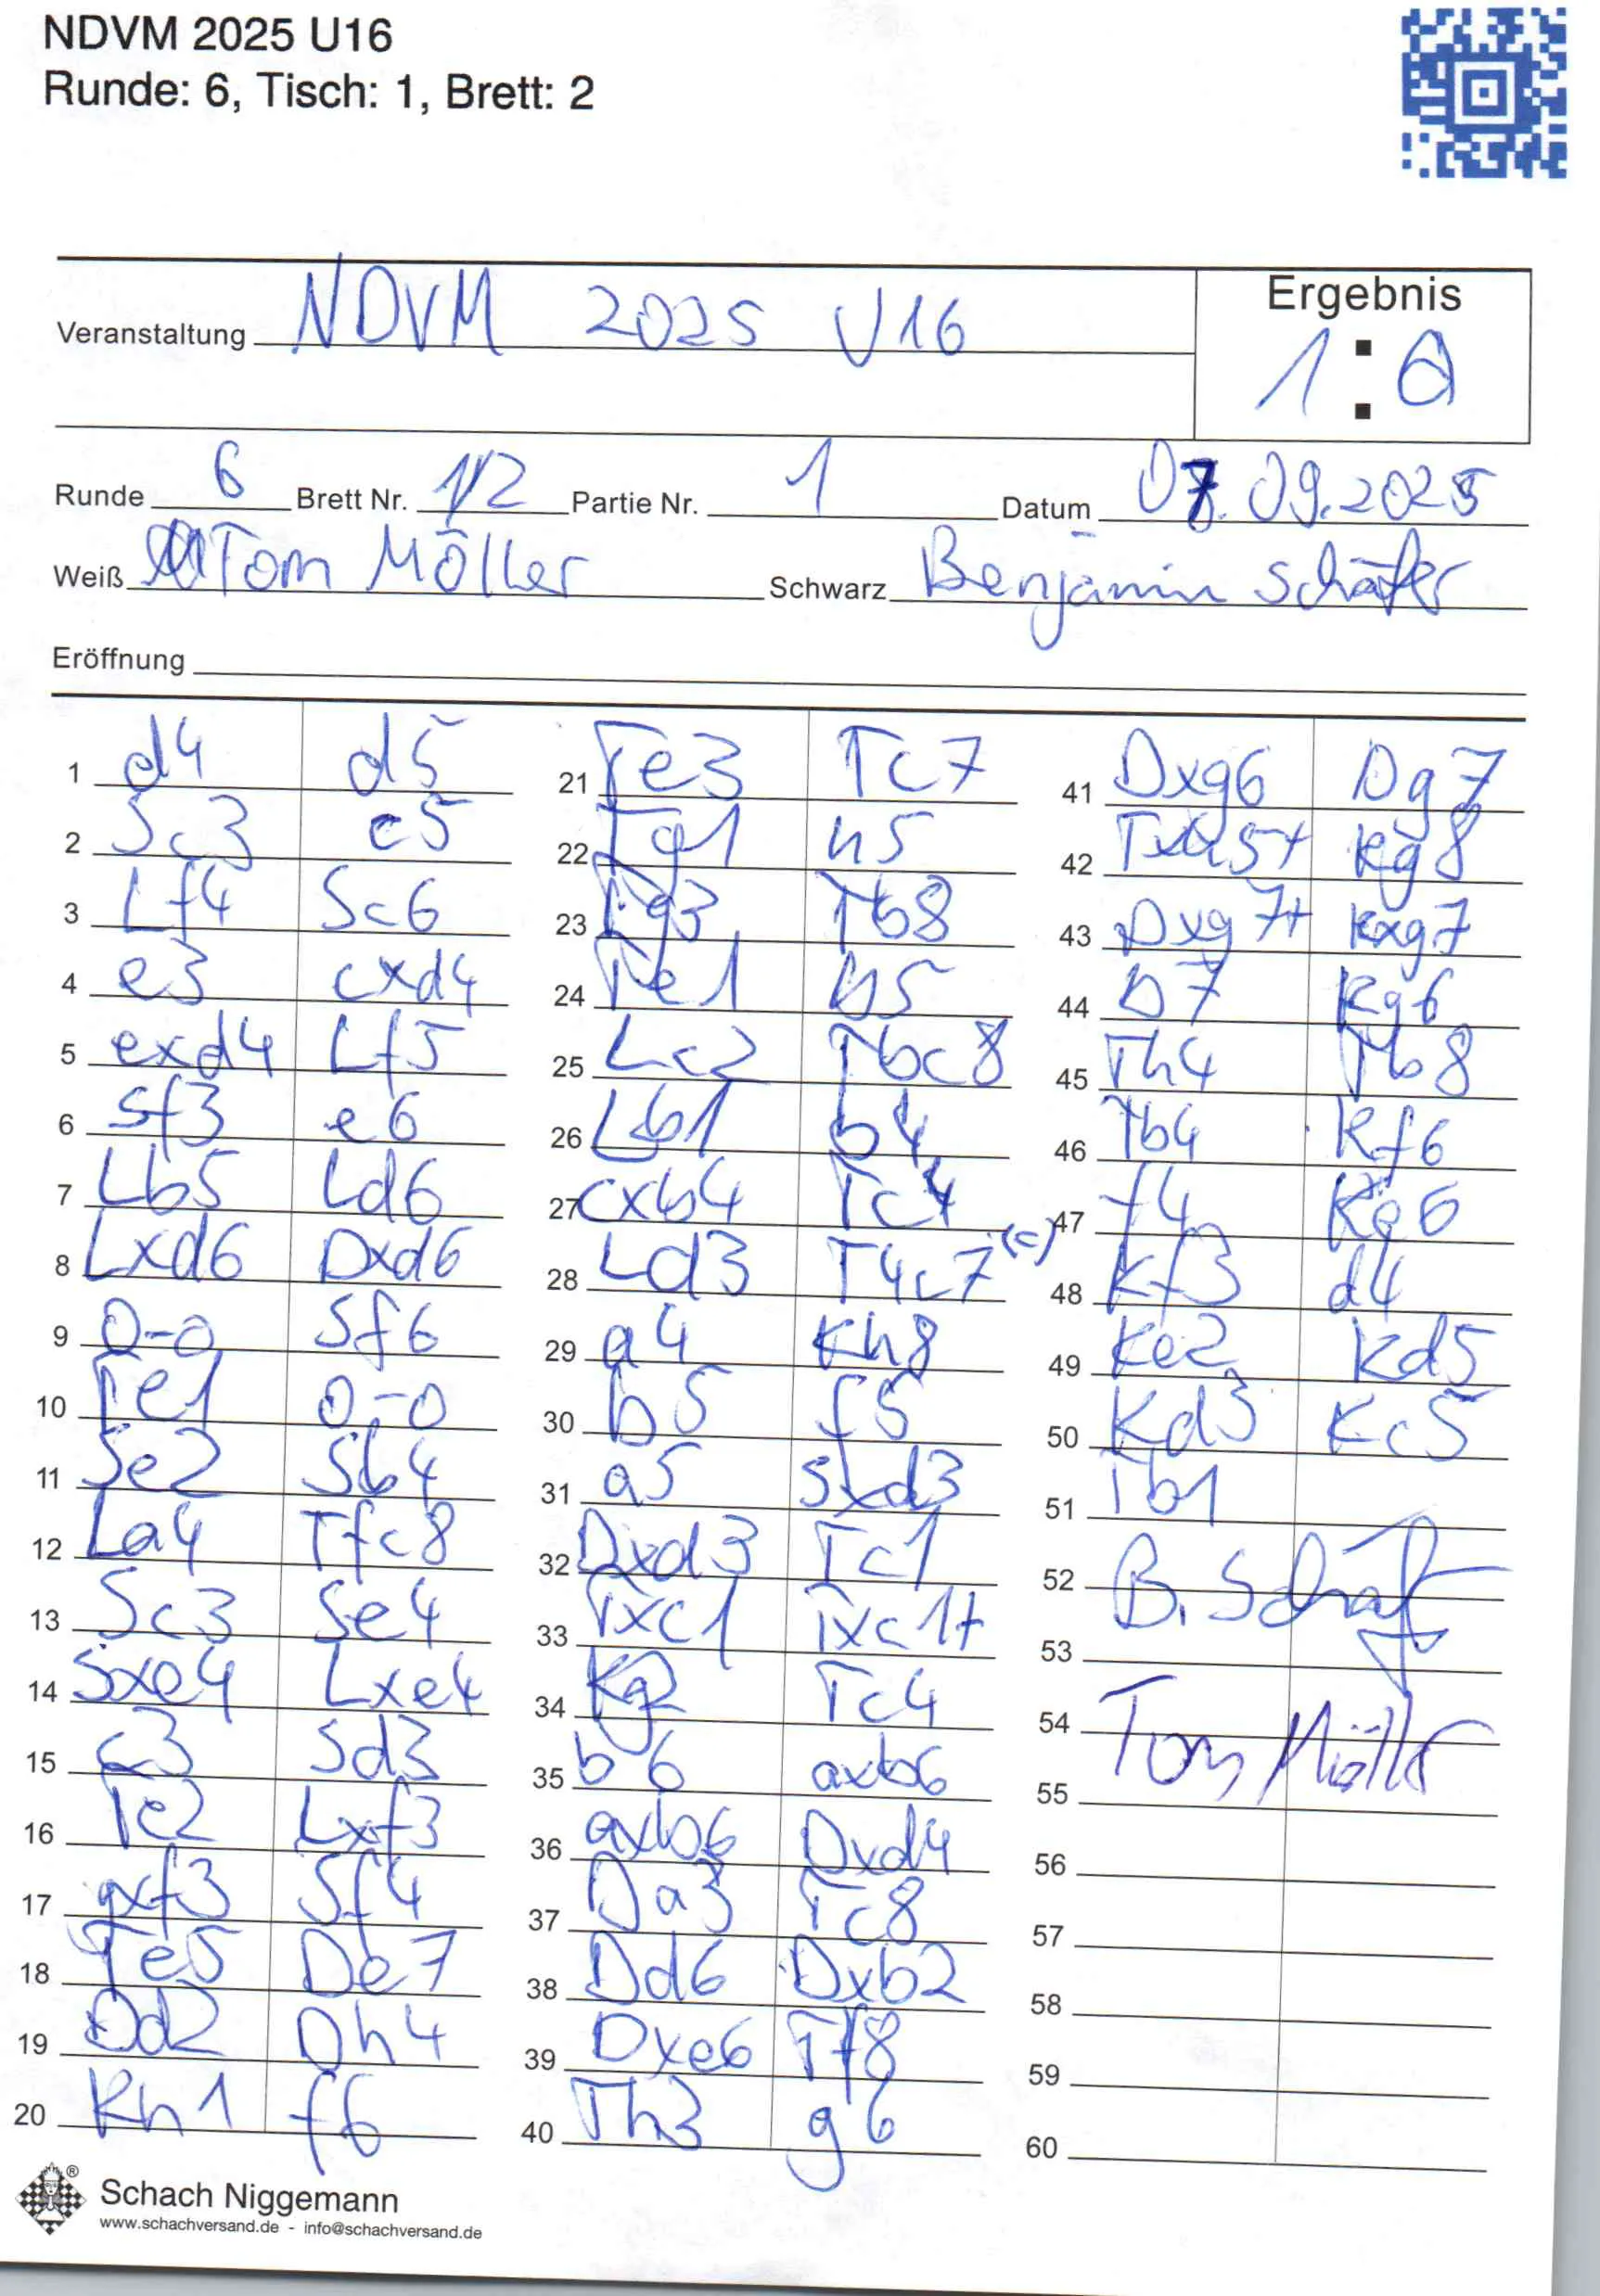 NDVM 2025 U16
Runde: 6, Tisch: 1, Brett: 2
Ergebnis
Veranstaltung NDVM 2025 U16
1:0
Runde 6 Brett Nr. 1/2 Partie Nr. 1 Datum 07.09.2025
Weiß Tom Möller Schwarz Benjamin Schäfer
Eröffnung
1 d4 d5
2 Sc3 c5
3 Lf4 Sc6
4 e3 cxd4
5 exd4 Lf5
6 Sf3 e6
7 Lb5 Ld6
8 Lxd6 Dxd6
9 0-0 Sf6
10 Te1 0-0
11 Se2 Sb4
12 La4 Tfc8
13 Sc3 Se4
14 Sxe4 Lxe4
15 c3 Sd3
16 Te2 Lxf3
17 gxf3 Sf4
18 Te5 De7
19 Dd2 Dh4
20 Kh1 f6
21 Te3 Tc7
22 Tg1 h5
23 Tg3 Tb8
24 Te1 b5
25 Lc2 Tbc8
26 Lb1 b4
27 cxb4 Tc4
28 Ld3 T4c7 (=)
29 a4 Kh8
30 b5 f5
31 a5 Sxd3
32 Dxd3 Tc1
33 Txc1 Txc1+
34 Kg2 Tc4
35 b6 axb6
36 axb6 Dxd4
37 Da3 Tc8
38 Dd6 Dxb2
39 Dxe6 Tf8
40 Th3 g6
41 Dxg6 Dg7
42 Txh5+ Kg8
43 Dxg7+ Kxg7
44 b7 Kg6
45 Th4 Tb8
46 Tb4 Kf6
47 f4 Ke6
48 Kf3 d4
49 Ke2 Kd5
50 Kd3 Kc5
51 Tb1
52 B. Schäf
53
54 Tom Möller
55
56
57
58
59
60
Schach Niggemann
www.schachversand.de - info@schachversand.de